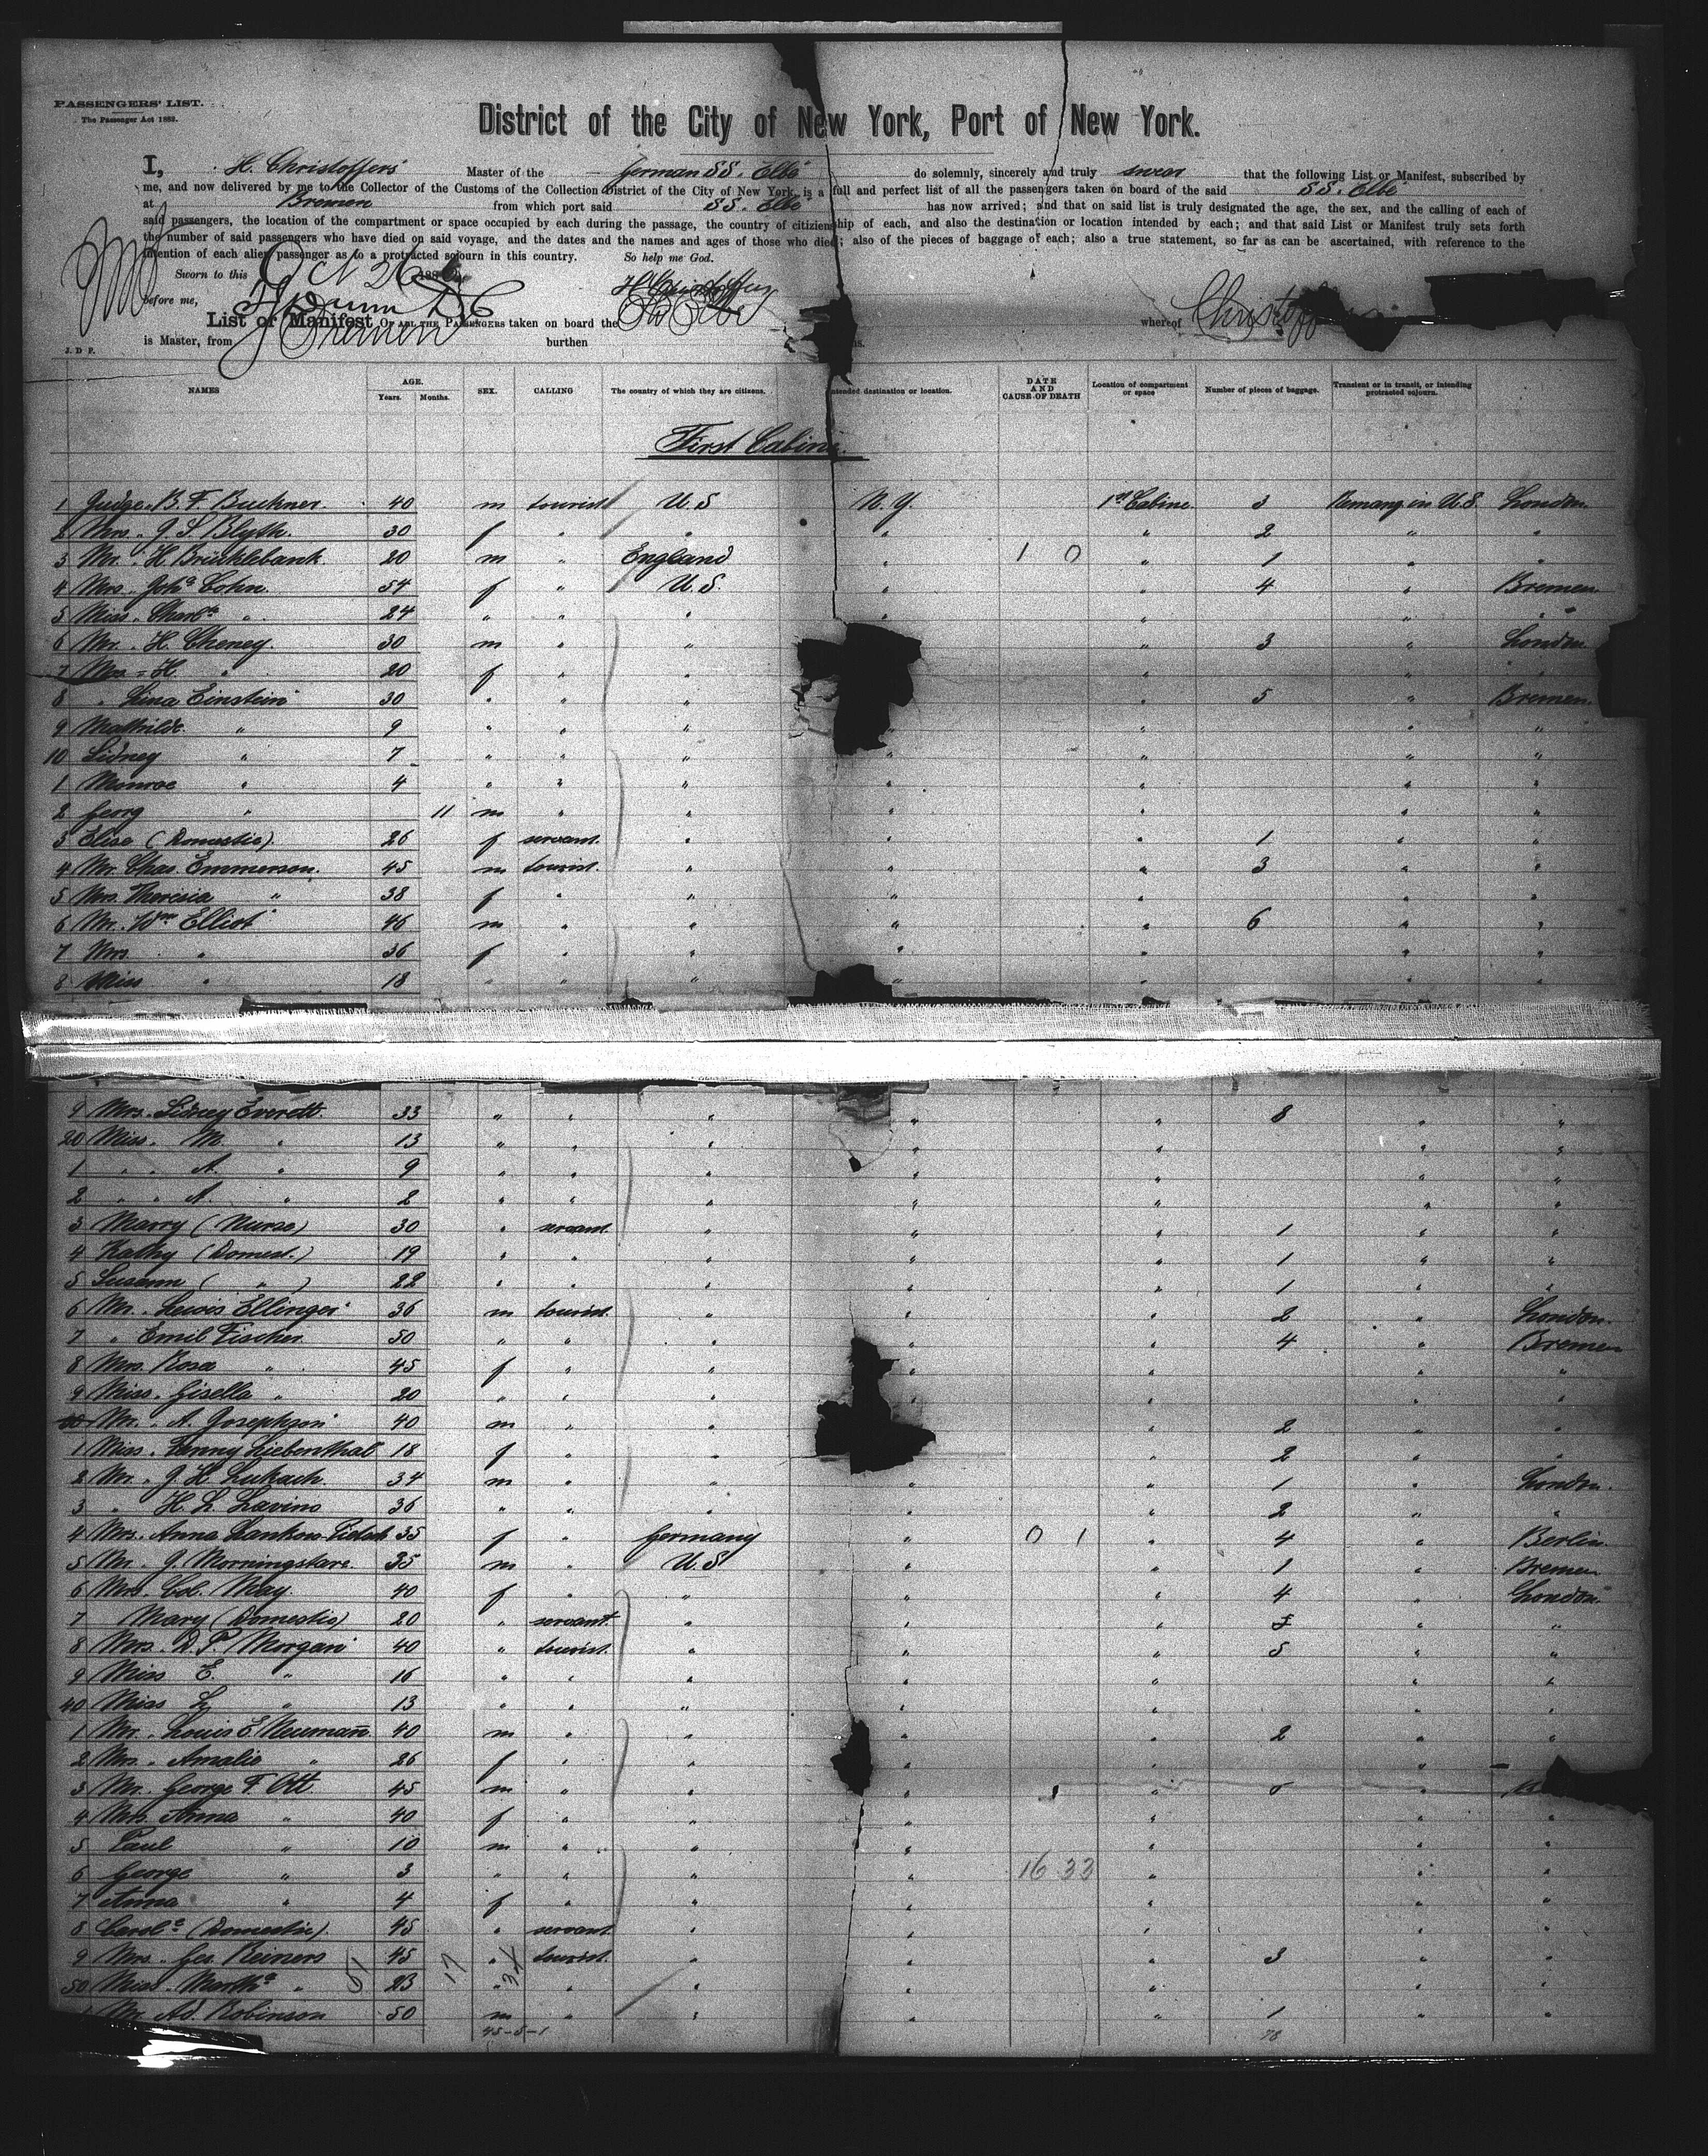 PASSENGERS' LIST.
The Passenger Act 1882.
District of the City of New York, Port of New York.
I, H. Christoffers Master of the German SS. Elbe do solemnly, sincerely and truly swear that the following List or Manifest, subscribed by
me, and now delivered by me to the Collector of the Customs of the Collection District of the City of New York, is a full and perfect list of all the passengers taken on board of the said SS. Elbe
at Bremen from which port said SS. Elbe has now arrived; and that on said list is truly designated the age, the sex, and the calling of each of
said passengers, the location of the compartment or space occupied by each during the passage, the country of citizenship of each, and also the destination or location intended by each; and that said List or Manifest truly sets forth
the number of said passengers who have died on said voyage, and the dates and the names and ages of those who died; also of the pieces of baggage of each; also a true statement, so far as can be ascertained, with reference to the
intention of each alien passenger as to a protracted sojourn in this country. So help me God.
Sworn to this Oct 26 188
before me, H Christoffers
List or Manifest OF ALL THE PASSENGERS taken on board the SS Elbe whereof Christoffers
is Master, from Bremen burthen
J. D. F.
NAMES AGE. Years. Months. SEX. CALLING The country of which they are citizens. Intended destination or location. DATE AND CAUSE OF DEATH Location of compartment or space Number of pieces of baggage. Transient or in transit, or intending protracted sojourn.
First Cabine.
1 Judge B. F. Buckner. 40 m tourist U.S N.Y. 1st Cabine. 3 Remang in U.S. London.
2 Mrs. J S Blyth. 30 f " " " " 2 " "
3 Mr. H. Brücklebank. 20 m " England " 1 0 " 1 " "
4 Mrs. Joha Cohn. 54 f " U.S. " " 4 " Bremen.
5 Miss. Charlte " 24 " " " " " " "
6 Mr. H. Cheney. 30 m " " " " 3 " London.
7 Mrs. H. " 20 f " " " " "
8 " Lina Einstein 30 " " " " " 5 " Bremen.
9 Mathilde " 9 " " " " " "
10 Sidney " 7 " " " " " " "
1 Monroe " 4 " " " " " " "
2 Georg " 11 m " " " " " "
3 Elise (Domestic) 26 f servant. " " " 1 " "
4 Mr. Chas. Emmerson. 45 m tourist. " " " 3 " "
5 Mrs. Theresia " 38 f " " " " " "
6 Mr. Wm Elliot 46 m " " " " 6 " "
7 Mrs. " 36 f " " " " " "
8 Miss " 18 " " " " " "
9 Mrs. Sidney Everett. 33 " " " " " 8 " "
20 Miss. M. " 13 " " " " " " "
1 " " A. " 9 " " " " " " "
2 " " A. " 2 " " " " " " "
3 Marry (Nurse) 30 " servant. " " " 1 " "
4 Kathy (Domest.) 19 " " " " " 1 " "
5 Susann ( " ) 22 " " " " " 1 " "
6 Mr. Lewis Ellinger 36 m tourist. " " " 2 " London.
7 " Emil Fischer 50 " " " " " 4 " Bremen
8 Mrs. Rosa " 45 f " " " " " "
9 Miss. Gisella " 20 " " " " " " "
30 Mr. A. Josephson 40 m " " " " 2 " "
1 Miss. Fanny Liebenthal 18 f " " " " 2 " "
2 Mr. J. H. Lukach. 34 m " " " " 1 " London.
3 " H. L. Lavino 36 " " " " " 2 " "
4 Mrs. Anna Lankow-Pietsch 35 f " Germany " 0 1 " 4 " Berlin.
5 Mr. J. Morningstare. 35 m " U.S " " 1 " Bremen
6 Mrs. Col. May. 40 f " " " " 4 " London.
7 Mary (Domestic) 20 " servant " " " " "
8 Mrs. D. P. Morgan 40 " tourist. " " " 5 " "
9 Miss E. " 16 " " " " " " "
40 Miss L. " 13 " " " " " " "
1 Mr. Louis E. Neumann. 40 m " " " " 2 " "
2 Mrs. Amalie " 26 f " " " " "
3 Mr. George F. Ott. 45 m " " " " "
4 Mrs. Anna " 40 f " " " " " "
5 Paul " 10 m " " " " " "
6 George " 3 " " " " 16 33 " " "
7 Anna " 4 f " " " " " "
8 Carole (Domestic). 45 " servant " " " " "
9 Mrs. Ges. Reiners 45 " tourist. " " " 3 " "
50 Miss. Martha " 23 " " " " " " "
1 Mr. Ad. Robinson 50 m " " " " 1 " "
51 17 34
45-5-1 78